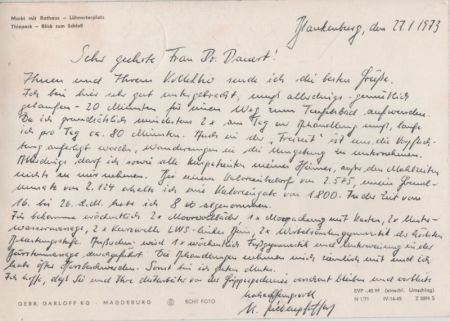 Markt mit Rathaus – Lühnertorplatz
Thiepark – Blick zum Schloß
Blankenburg, den 27.1.1973
Sehr geehrte Frau Dr. Dauert!
Ihnen und Ihrem Kollektiv sende ich die besten Grüße.
Ich bin hier sehr gut untergebracht, muß allerdings - gemütlich
gelaufen - 20 Minuten für einen Weg zum Teufelsbad aufwenden.
Da ich grundsätzlich mindestens 2 x am Tag zur Behandlung muß, laufe
ich pro Tag ca. 80 Minuten. Auch in der "Freizeit" ist uns die Verpflich-
tung auferlegt worden, Wanderungen in die Umgebung zu unternehmen.
Allerdings darf ich sowie alle Kurpatienten meines Hauses, außer den Mahlzeiten
nichts zu mir nehmen. Bei einem Kalorienbedarf von 2.575, meinem Grund-
umsatz von 2.124 erhalte ich eine Kalorieneingabe von 1.800. In der Zeit vom
16. bis 26.d.M. habe ich 8 abgenommen.
Ich bekomme wöchentlich 2 x Moorvollbäder 1 x Moorpackung mit Kasten, 2 x Unter-
wassermassage, 2 x Kurzwelle LWS - linkes Knie, 2 x Wirbelsäulengymnastik
. Außerdem wird 1 x wöchentlich Fußgymnastik und Unterweisung in der
Bürstenmassage durchgeführt. Die Behandlungen nehmen mich ziemlich mit und ich
habe öfter . Sonst bin ich guten Mutes.
Ich hoffe, daß Sie und Ihre Mitarbeiter von der Grippeepidemie verschont bleiben und verbleibe
hochachtungsvoll
GEBR. GARLOFF KG · MAGDEBURG
ECHT FOTO
EVP -,45 M (einschl. Umschlag)
N 1/71 IV-14-45 Z 5894 S